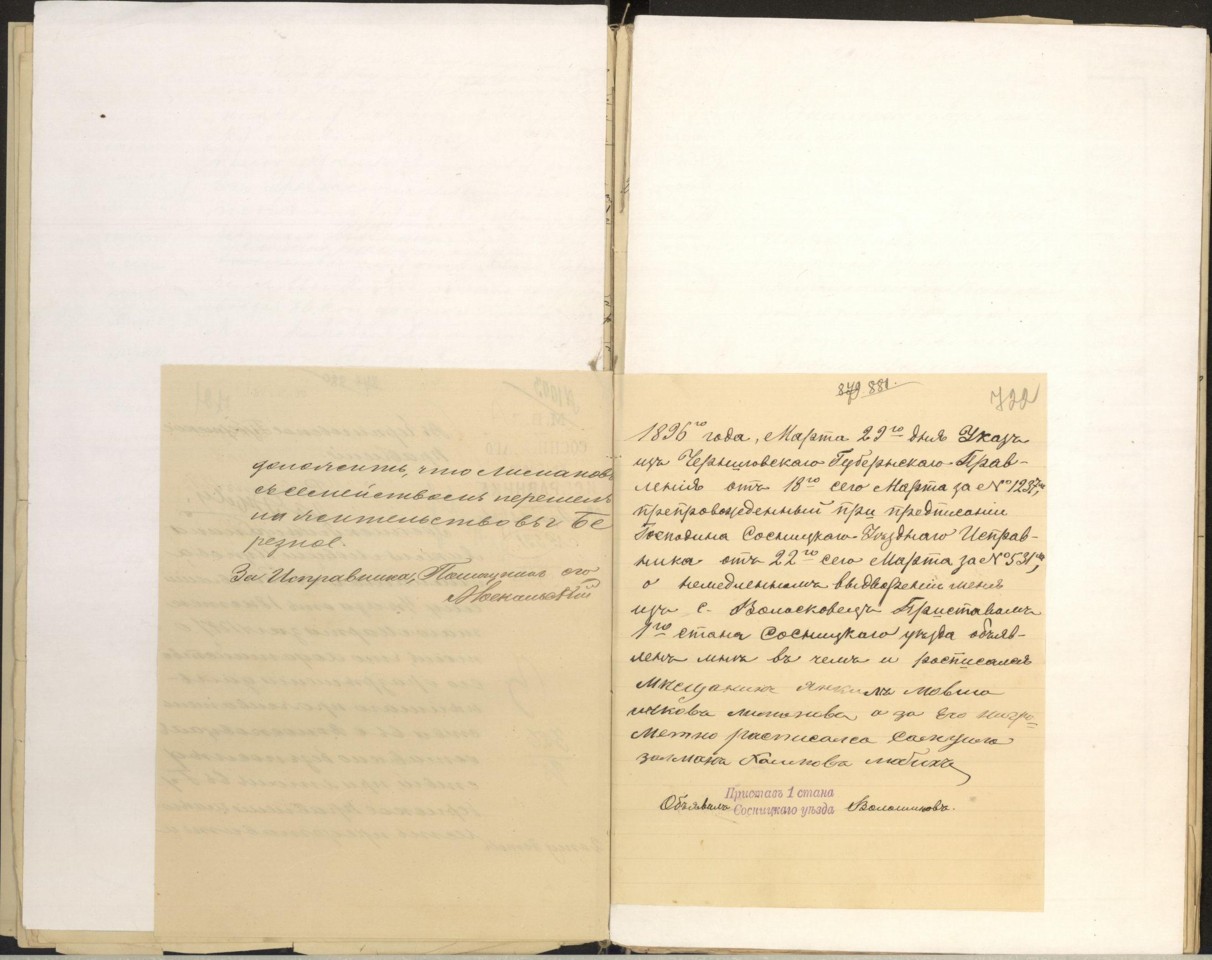 доложить, что Лисманов
съ семействомъ перешелъ
на жительство въ г. Бе
резное.
За Исправника, Помощникъ его
879 881.
722
1896го года, Марта 29го дня Указъ
изъ Черниговскаго Губернскаго Прав-
ленія отъ 18го сего Марта за №
препровожденный при предписаніи
Господина Сосницкаго Уѣзднаго Исправ-
ника отъ 22го сего Марта за № 531,
о немедленномъ выдвореніи меня
изъ с. Волосковецъ Приставомъ
1го стана Сосницкаго уѣзда объяв-
ленъ мнѣ въ чемъ и росписался
Мѣщанинъ Янкель мовша
а за его негра=
мотно росписался
залмана
Объявилъ Приставъ 1 стана
Сосницкаго уѣзда Волошиновъ.